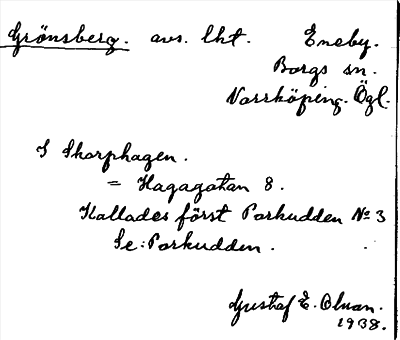 Grönsberg. avs. lht. Eneby.
Borgs sn.
Norrköping. Ögl.
I Skarphagen.
= Hagagatan 8.
Kallades först Parkudden № 3
Se: Parkudden.
Gustaf E. Olsson.
1938.